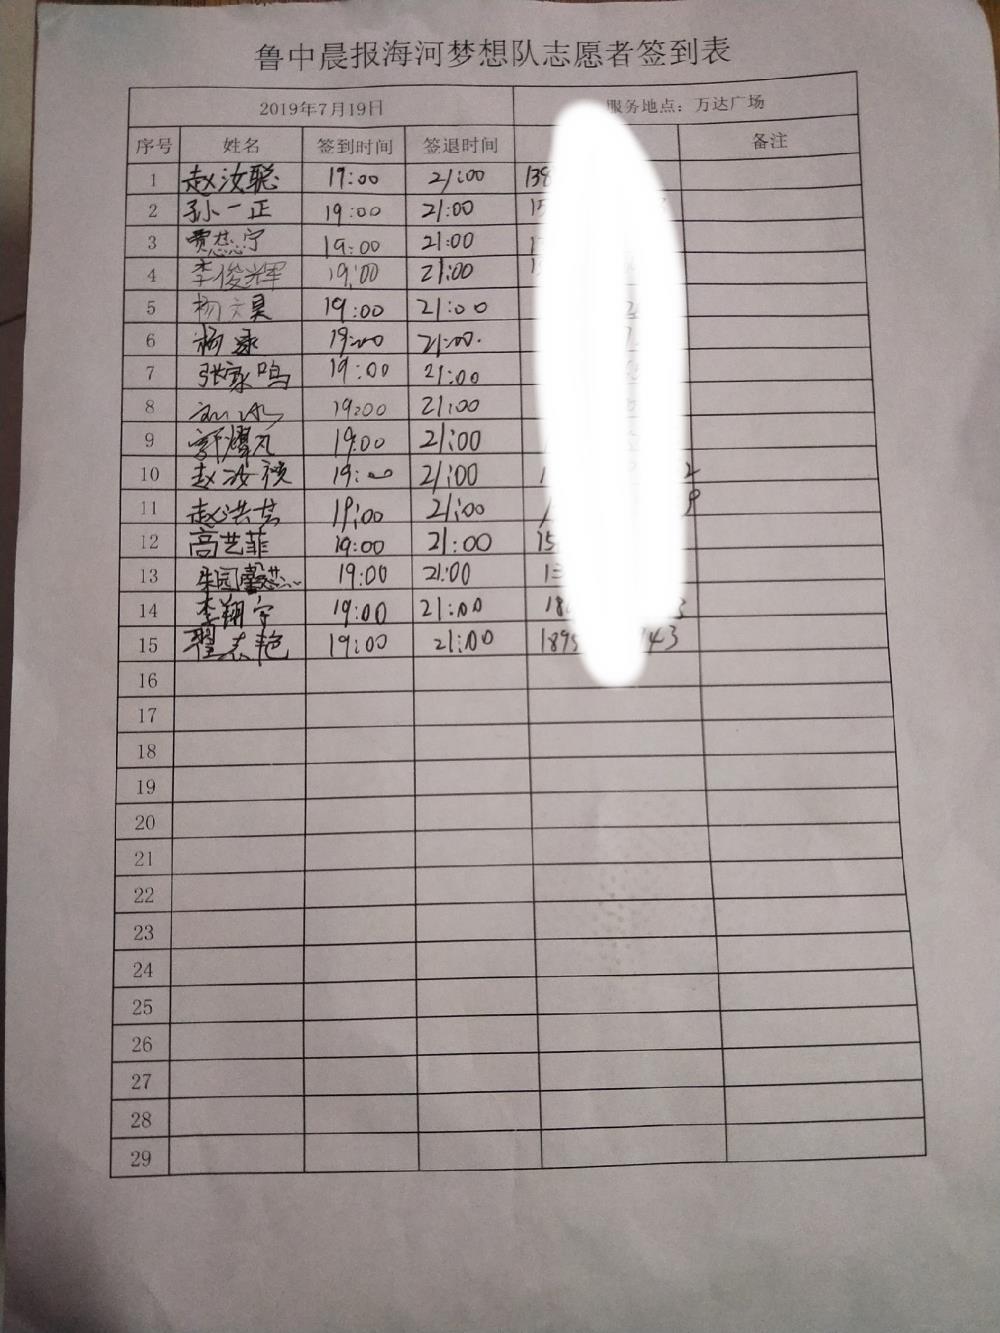 鲁中晨报海河梦想队志愿者签到表
2019年7月19日 服务地点：万达广场
序号 姓名 签到时间 签退时间 备注
1 赵汝聪 19:00 21:00 139
2 孙一正 19:00 21:00 15
3 贾蕊宁 19:00 21:00
4 李俊辉 19:00 21:00
5 杨文昊 19:00 21:00
6 杨 19:00 21:00.
7 张家鸣 19:00 21:00
8 19:00 21:00
9 郭耀凡 19:00 21:00
10 赵汝祯 19:00 21:00 1 2
11 赵洪 19:00 21:00 1 9
12 高艺菲 19:00 21:00 15
13 朱园馨蕊 19:00 21:00 13
14 李翔宇 19:00 21:00 18 3
15 翟志艳 19:00 21:00 1895 143
16
17
18
19
20
21
22
23
24
25
26
27
28
29